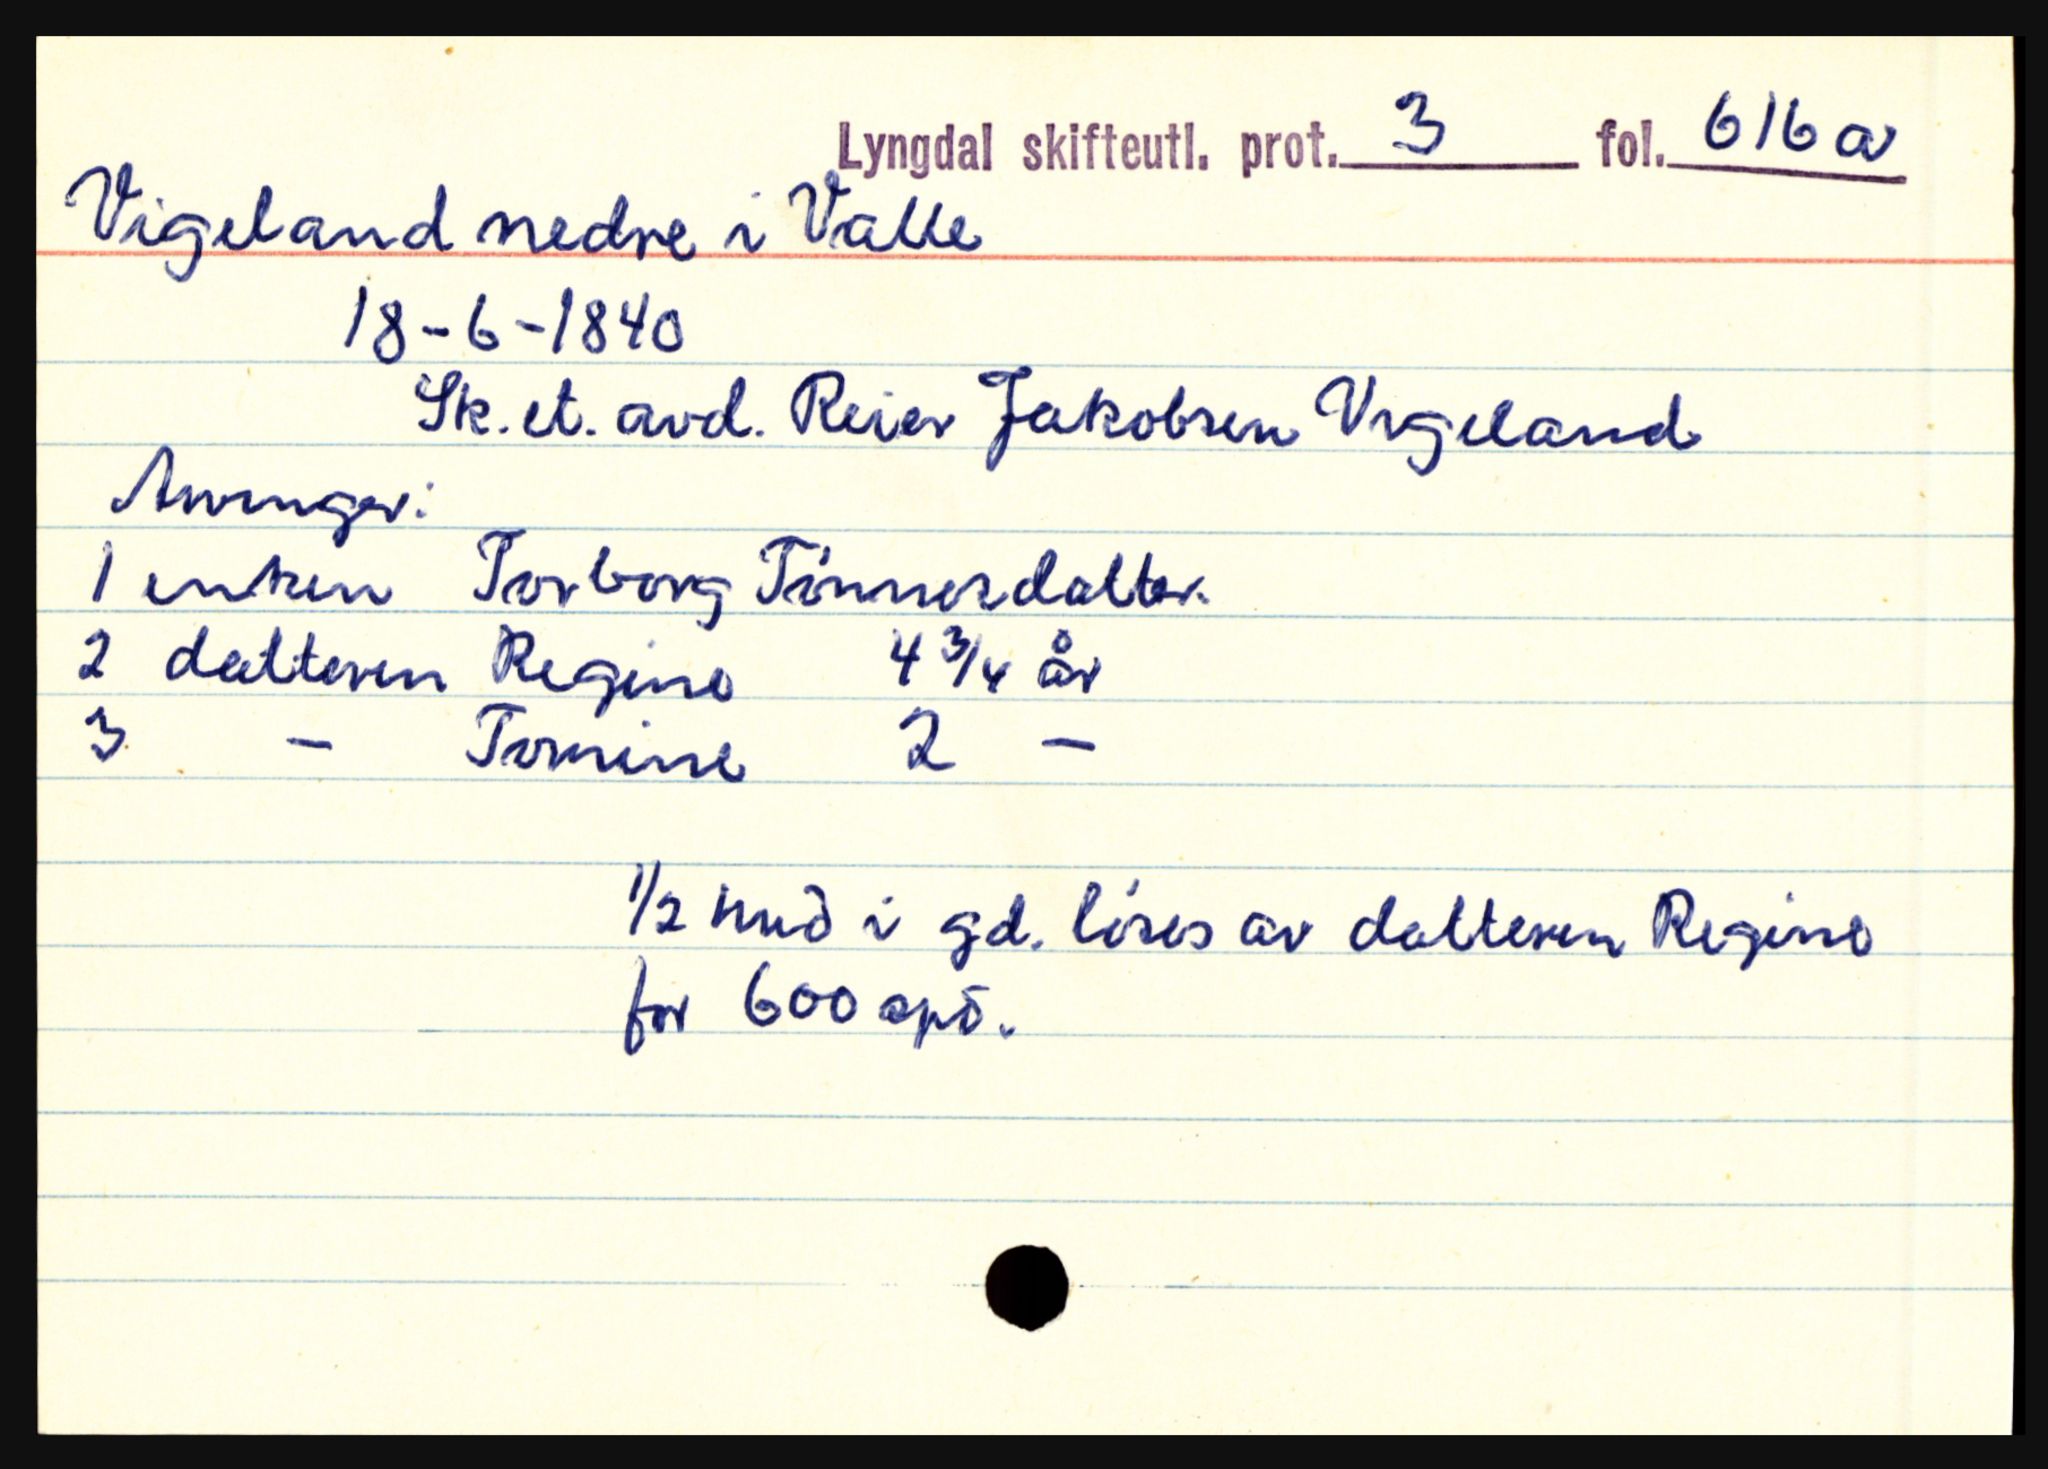 Lyngdal skifteutl. prot. 3 fol. 616a
Vigeland nedre i Valle
18-6-1840
Sk. et. avd. Reier Jakobsen Vigeland
Arvinger:
1 enken Torborg Tönnesdatter.
2 datteren Regine 4 3/4 år
3 - Tomine 2 -
1/2 hud i gd. löses av datteren Regine
for 600 spd.